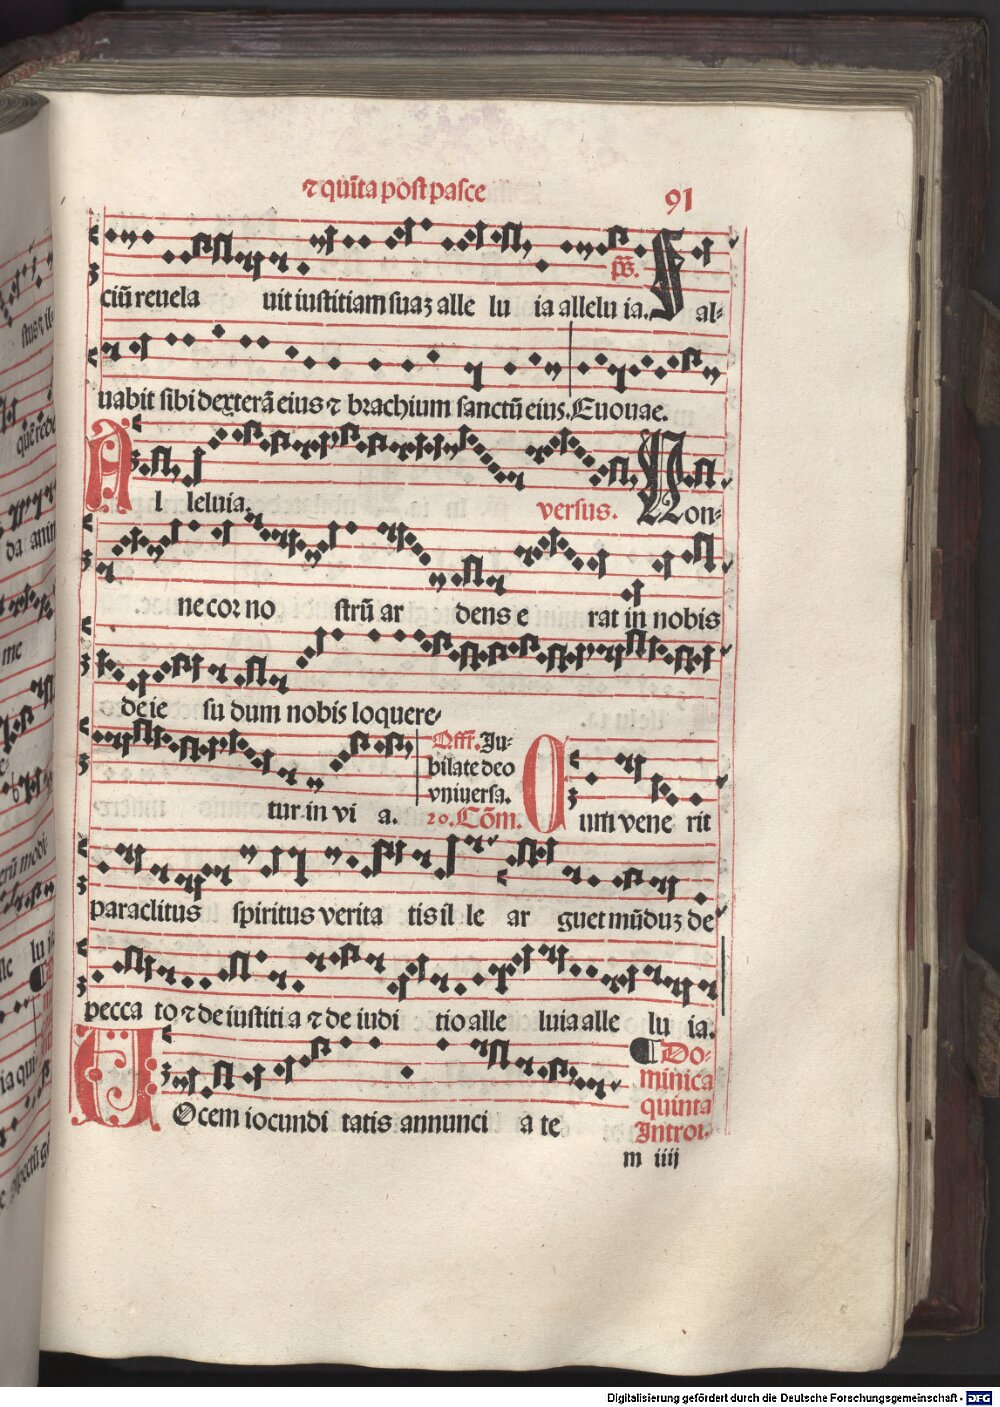 ⁊ quīta post pasce 91
ciū reuela uit iustitiam suaꝫ alle lu ia allelu ia. ps̄. Sal-
uabit sibi dexterā eius ⁊ brachium sanctū eius. Euouae.
Al leluia. versus. Non-
ne cor no strū ar dens e rat in nobis
de ie su dum nobis loquere-
tur in vi a. Off̄. Ju-
bilate deo
vniuersa.
20. Cōm. Cum vene rit
paraclitus spiritus verita tis il le ar guet mūduꝫ de
pecca to ⁊ de iustiti a ⁊ de iudi tio alle luia alle lu ia.
Vocem iocundi tatis annunci a te
¶ Do-
minica
quinta
Introi.
m iiij
Digitalisierung gefördert durch die Deutsche Forschungsgemeinschaft - DFG